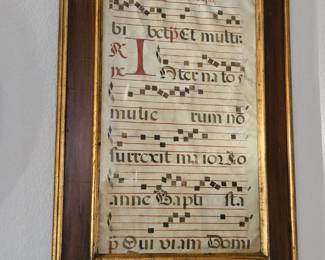 bi bet p̄ Et multi:
R̄ Inter nato s
mulie rum nō
surrexit maior Jo
anne Bapti sta
p̄ Qui viam Domi